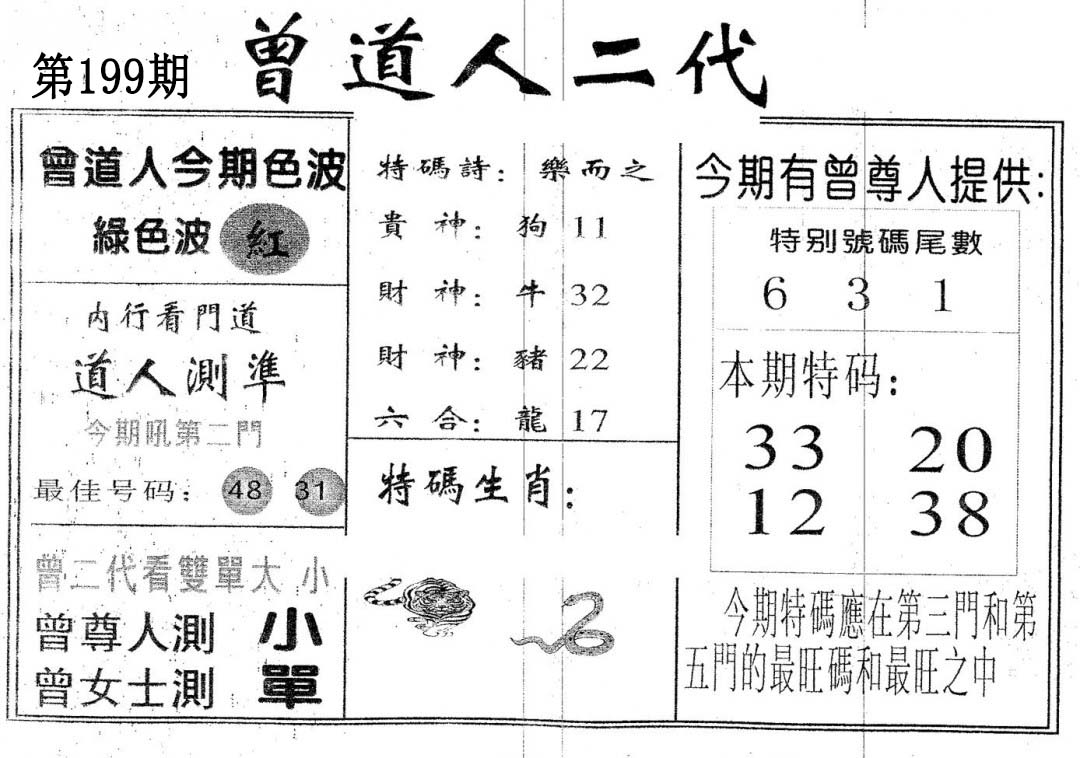 曾道人二代
第199期
曾道人今期色波
綠色波 紅
内行看門道
道人測準
今期吼第二門
最佳号码： 48 31
曾二代看雙單大 小
曾尊人測 小
曾女士測 單
特碼詩： 樂而之
貴神： 狗 11
財神： 牛 32
財神： 豬 22
六合： 龍 17
特碼生肖：
今期有曾尊人提供：
特别號碼尾數
6 3 1
本期特码：
33 20
12 38
今期特碼應在第三門和第
五門的最旺碼和最旺之中